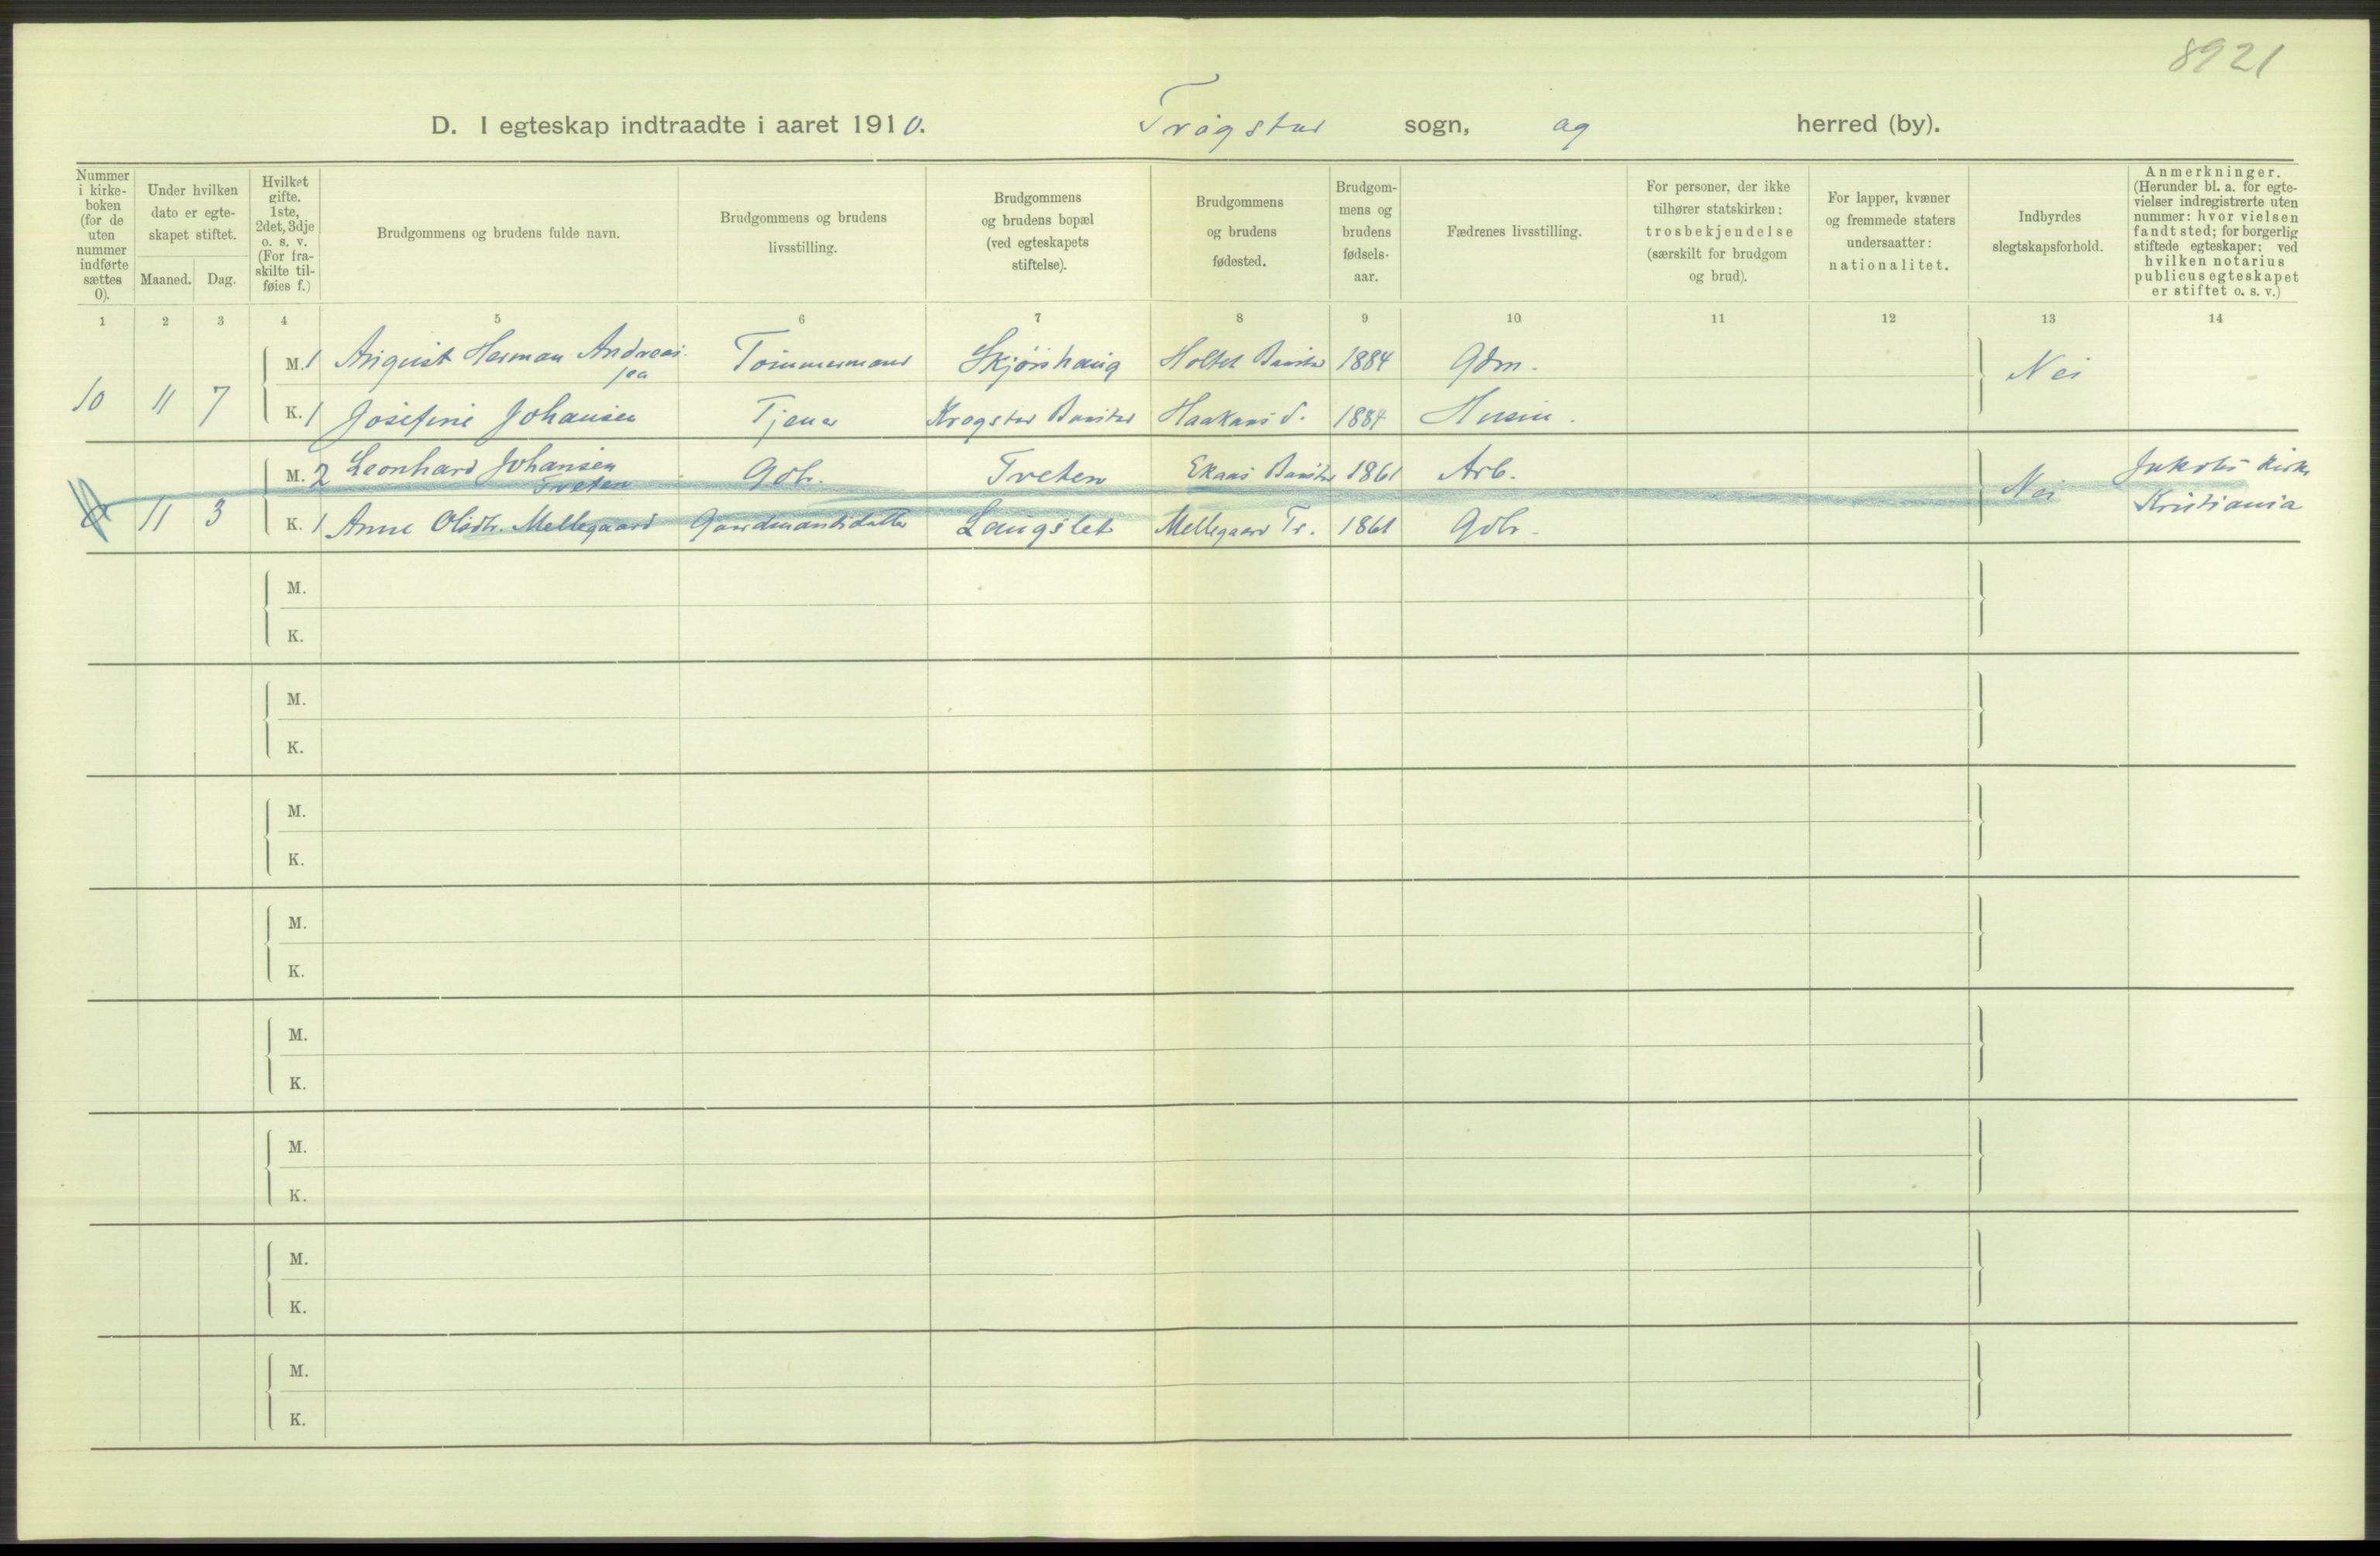 8921
D. I egteskap indtraadte i aaret 1910. Trøgstad sogn, og herred (by).
Nummer i kirke- boken (for de uten nummer indførte sættes 0).
Under hvilken dato er egte- skapet stiftet.
Maaned. Dag.
Hvilket gifte. 1ste, 2det, 3dje o. s. v. (For fra- skilte til- føies f.)
Brudgommens og brudens fulde navn.
Brudgommens og brudens livsstilling.
Brudgommens og brudens bopæl (ved egteskapets stiftelse).
Brudgommens og brudens fødested.
Brudgom- mens og brudens fødsels- aar.
Fædrenes livsstilling.
For personer, der ikke tilhører statskirken: trosbekjendelse (særskilt for brudgom og brud).
For lapper, kvæner og fremmede staters undersaatter: nationalitet.
Indbyrdes slegtskapsforhold.
Anmerkninger. (Herunder bl. a. for egte- vielser indregistrerte uten nummer: hvor vielsen fandt sted; for borgerlig stiftede egteskaper: ved hvilken notarius publicus egteskapet er stiftet o. s. v.)
1 2 3 4 5 6 7 8 9 10 11 12 13 14
M. 1 August Herman Andreas- Tømmermand Skjønhaug Holtet Baastad 1884 Gdm. Nei
sen
10 11 7 K. 1 Josefine Johansen Tjener Krogstad Baastad 1884
M. 2 Leonhard Johansen Gdbr. Treten Baastad 1861 Arb. Nei Jakobs Kirke
Treten
0 11 3 K. 1 Anne Olsdtr. Mellegaard Gaardmandsdatter Langslet Mellegaard Tr. 1861 Gdbr. Kristiania
M.
K.
M.
K.
M.
K.
M.
K.
M.
K.
M.
K.
M.
K.
M.
K.